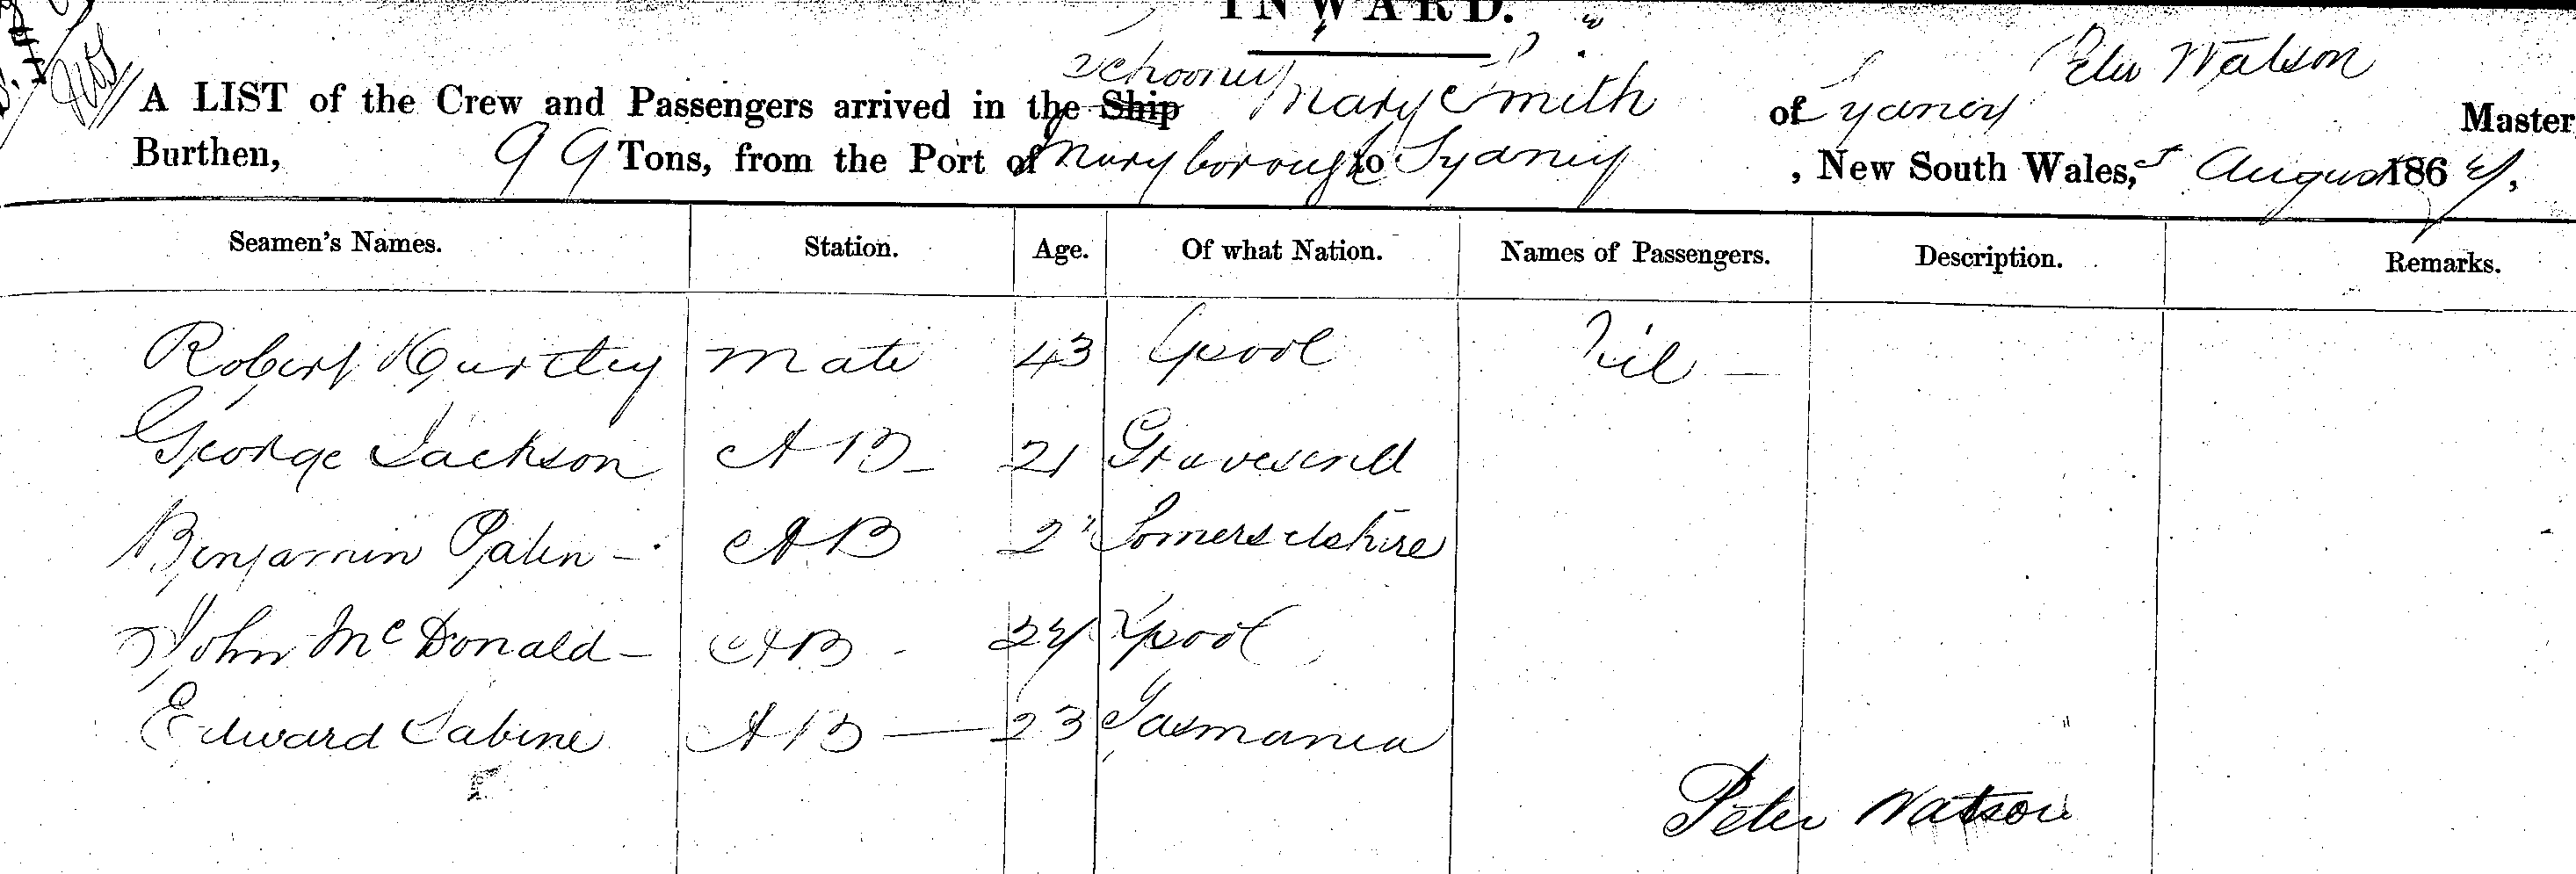 INWARD.
Schooner Peter Watson
A LIST of the Crew and Passengers arrived in the Ship Mary Smith of Sydney Master
Burthen, 99 Tons, from the Port of Maryborough to Sydney, New South Wales, August 1864,
Seamen's Names. Station. Age. Of what Nation. Names of Passengers. Description. Remarks.
Robert Mate 43 Lpool Nil —
George Jackson AB – 21 Gravesend
Benjamin Palin – AB Somersetshire
John McDonald – AB - 24 Lpool
Edward Sabine AB — 23 Tasmania
Peter Watson